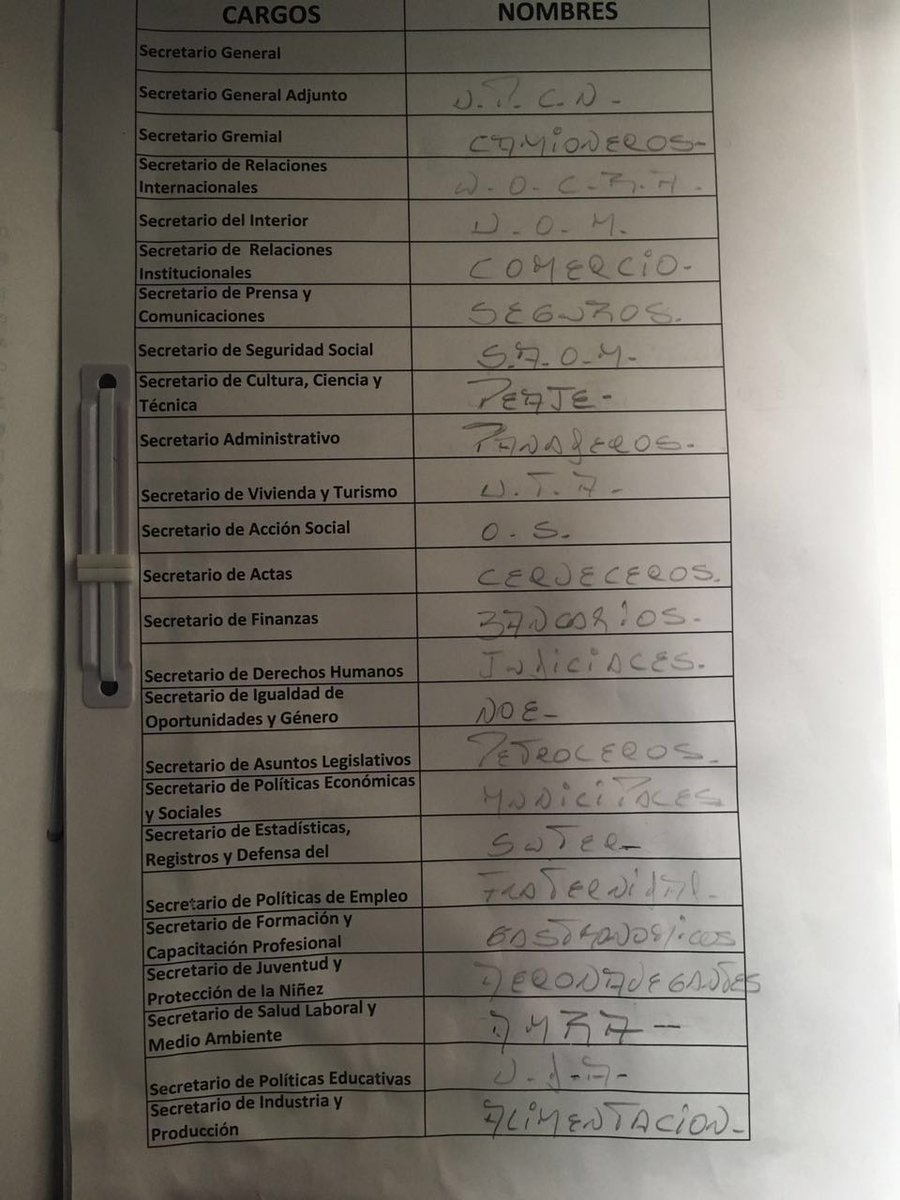 CARGOS NOMBRES
Secretario General
Secretario General Adjunto U.P.C.N-
Secretario Gremial CAMIONEROS-
Secretario de Relaciones
Internacionales U.O.C.R.A.
Secretario del Interior U.O.M.
Secretario de Relaciones
Institucionales COMERCIO-
Secretario de Prensa y
Comunicaciones SEGUROS.
Secretario de Seguridad Social S.A.O.M.
Secretario de Cultura, Ciencia y
Técnica PEAJE-
Secretario Administrativo
Secretario de Vivienda y Turismo U.T.A-
Secretario de Acción Social O.S.
Secretario de Actas CERVECEROS.
Secretario de Finanzas BANCARIOS-
Secretario de Derechos Humanos JUdiCiALES.
Secretario de Igualdad de
Oportunidades y Género NOE-
Secretario de Asuntos Legislativos PETROLEROS.
Secretario de Políticas Económicas
y Sociales MUNICIPALES
Secretario de Estadísticas,
Registros y Defensa del SUTER-
Secretario de Políticas de Empleo FRATERNidAd-
Secretario de Formación y
Capacitación Profesional GASTRONOMicos
Secretario de Juventud y
Protección de la Niñez AERONAVEGANTES
Secretario de Salud Laboral y
Medio Ambiente AMRA-
Secretario de Políticas Educativas U.d.A-
Secretario de Industria y
Producción ALIMENTACION-